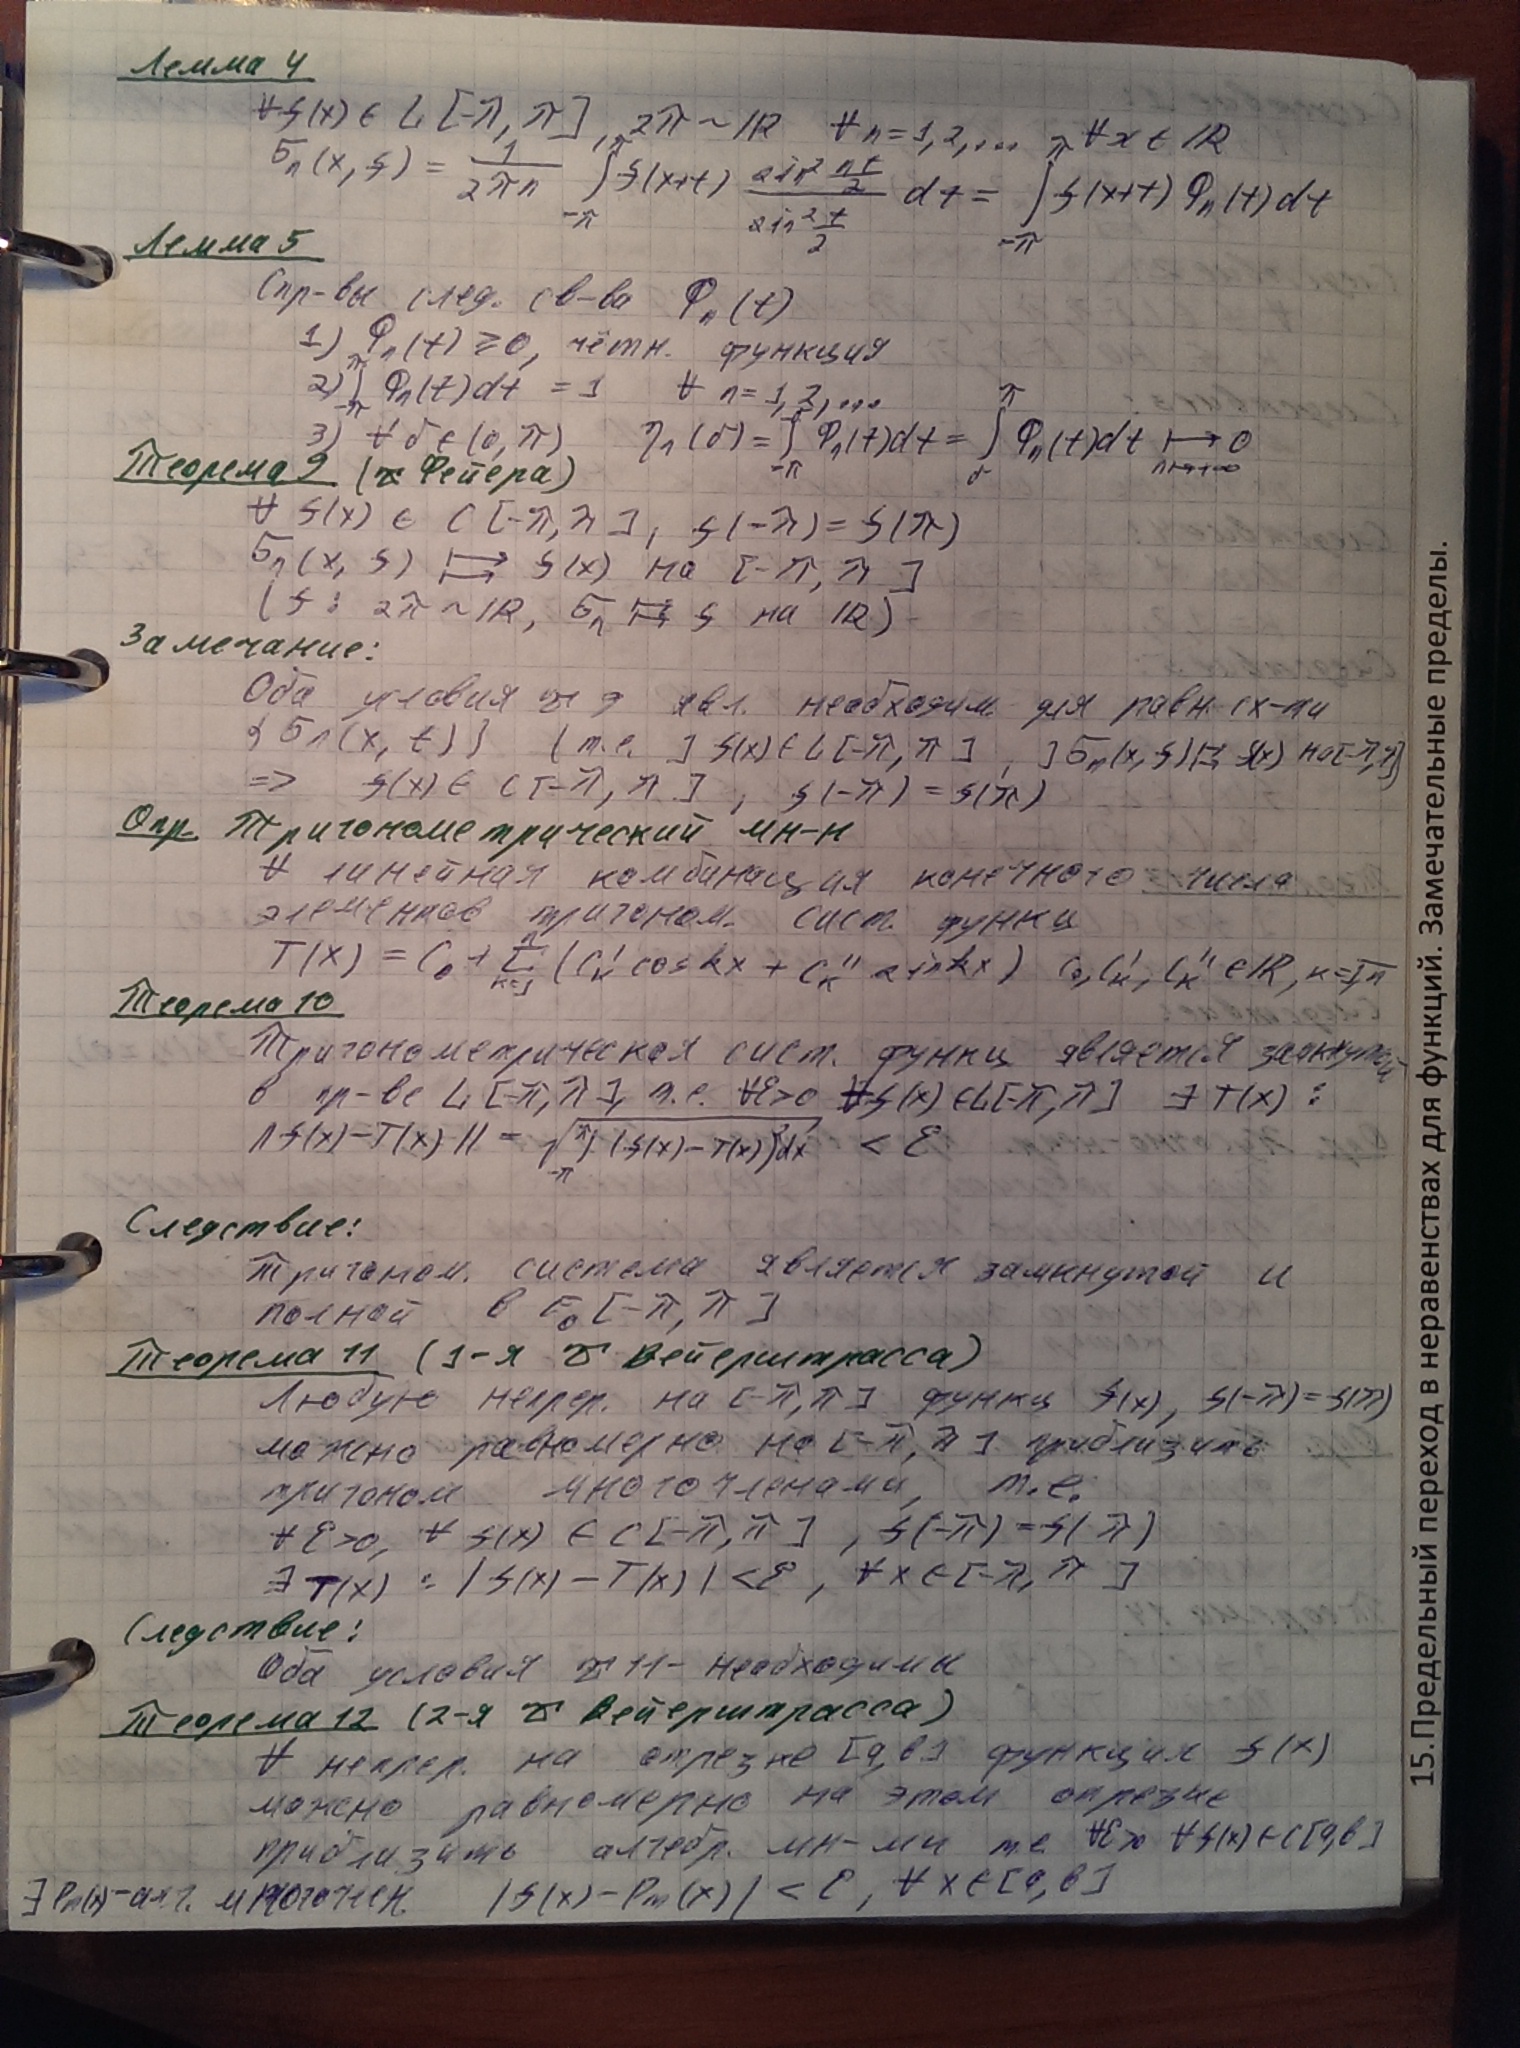 Лемма 4
∀ f(x) ∈ L[-π, π], 2π ~ IR ∀ n = 1, 2, ... , ∀ x ∈ IR
σₙ(x, f) = 1/(2πn) ∫_{-π}^{π} f(x+t) (sin² nt/2)/(sin² t/2) dt = ∫_{-π}^{π} f(x+t) Φₙ(t) dt
Лемма 5
Спр-вы след. св-ва Φₙ(t)
1) Φₙ(t) ≥ 0, чётн. функция
2) ∫_{-π}^{π} Φₙ(t) dt = 1 ∀ n = 1, 2, ...
3) ∀ δ ∈ (0, π) ηₙ(δ) = ∫_{-π} Φₙ(t) dt = ∫_{δ}^{π} Φₙ(t) dt ↦ 0 n↦+∞
Теорема 9 (т Фейера)
∀ f(x) ∈ C[-π, π], f(-π) = f(π)
σₙ(x, f) ⇉ f(x) на [-π, π]
(f: 2π ~ IR, σₙ ⇉ f на IR)
Замечание:
Оба условия т 9 явл. необходим. для равн. сх-ти
{σₙ(x, t)} (т.е. ] f(x) ∈ L[-π, π], ] σₙ(x, f) ⇉ f(x) на [-π, π]
=> f(x) ∈ C[-π, π], f(-π) = f(π)
Опр. Тригонометрический мн-н
∀ линейная комбинация конечного числа
элементов тригоном. сист. функц
T(x) = C₀ + Σ_{k=1}^{n} (Cₖ' cos kx + Cₖ'' sin kx) C₀, Cₖ', Cₖ'' ∈ IR, k = 1,n
Теорема 10
Тригонометрическая сист. функц является замкнутой
в пр-ве L[-π, π], т.е. ∀ε>0 ∀ f(x) ∈ L[-π, π] ∃ T(x) :
||f(x) - T(x)|| = √(∫_{-π}^{π} (f(x) - T(x))² dx) < ε
Следствие:
Тригоном. система является замкнутой и
полной в E₀[-π, π]
Теорема 11 (1-я т Вейерштрасса)
Любую непрер. на [-π, π] функц f(x), f(-π) = f(π)
можно равномерно на [-π, π] приблизить
тригоном многочленами, т.е.
∀ ε>0, ∀ f(x) ∈ C[-π, π], f(-π) = f(π)
∃ T(x) : |f(x) - T(x)| < ε, ∀ x ∈ [-π, π]
Следствие:
Оба условия т 11 - необходимы
Теорема 12 (2-я т Вейерштрасса)
∀ непрер. на отрезке [a, b] функция f(x)
можно равномерно на этом отрезке
приблизить алгебр. мн-ми т.е ∀ε>0 ∀ f(x) ∈ C[a, b]
∃ Pₘ(x) - алг. многочлен. |f(x) - Pₘ(x)| < ε, ∀ x ∈ [a, b]
15.Предельный переход в неравенствах для функций. Замечательные пределы.